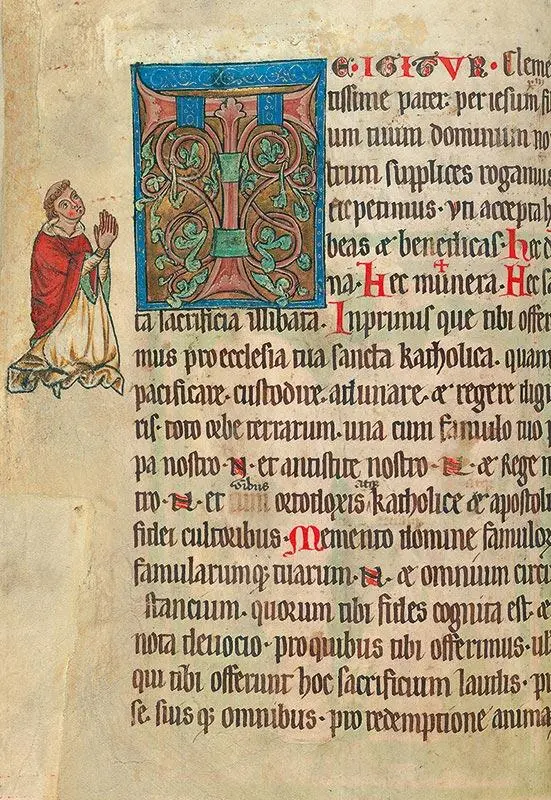 TE · IGITVR · Cleme
tissime pater: per iesum fi
um tuum dominum no
trum supplices rogamus
et petimus · vti accepta h
beas & benedicas · hec d
na · Hec munera · Hec sa
ta sacrificia illibata. Inprimis que tibi offer
mus pro ecclesia tua sancta katholica. quam
pacificare. custodire. adunare. & regere dig
ris · toto orbe terrarum. una cum famulo tuo p
pa nostro · N · et antistite nostro · N · & Rege n
tro · N · et omnibus ortodoxis atque katholice & apostoli
fidei cultoribus · Memento domine famulor
famularumq; tuarum · N · & omnium circu
stancium · quorum tibi fides cognita est · &
nota deuocio · pro quibus tibi offerimus · ul
qui tibi offerunt hoc sacrificium laudis · pr
se. suis q; omnibus · pro redemptione anima